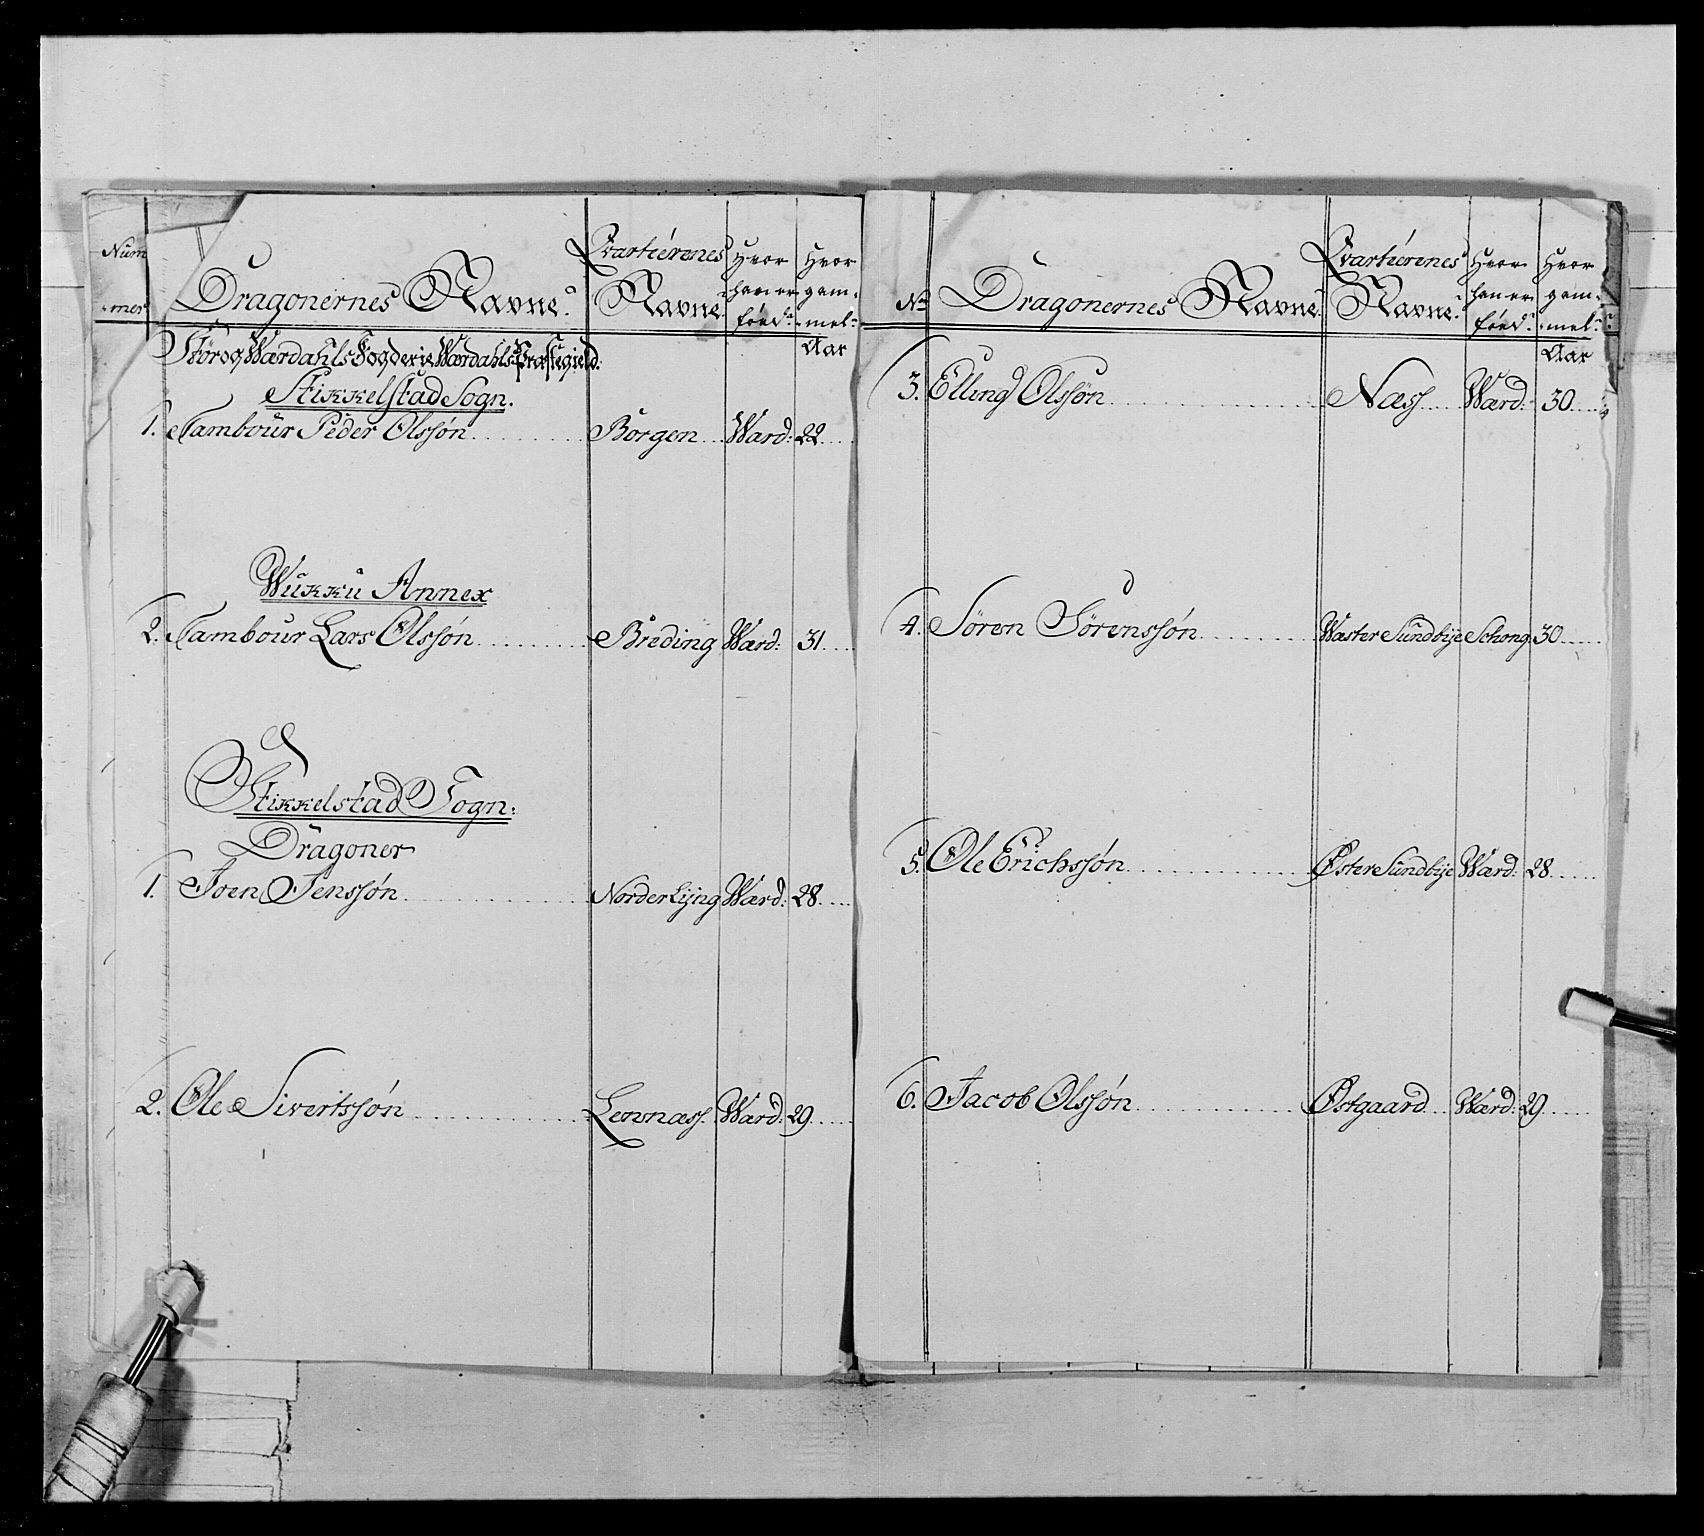 Num
-mer
Dragonernes Navne
Qvartierenes
Navne
Hvor
han er
föed
Hvor
gam-
mel
Aar
Stör og Wærdahls Fogderie Wærdahls Præstegield:
Stikkelstad Sogn.
1. Tambour Peder Olssön Borgen Wærd: 22
Wukku Annex
2. Tambour Lars Olssön Breding Wærd: 31
Stikkelstad Sogn:
Dragoner
1. Joen Jenssön Norder Lijng Wærd: 28
2. Ole Sivertssön Lennæss Wærd: 29
No Dragonernes Navne
Qvartierenes
Navne
Hvor
han er
föed
Hvor
gam-
mel
Aar
3. Elling Olssön Næss Wærd: 30
4. Sören Sörenssön Wæster Sundbÿe Schong 30
5. Ole Erichssön Øster Sundbÿe Wærd: 28
6. Jacob Olssön Østgaard Wærd: 29